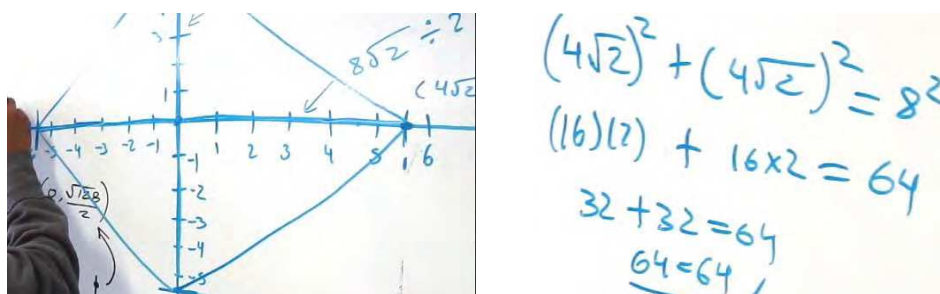 3
8√2 ÷ 2
1
(4√2
-5 -4 -3 -2 -1 1 2 3 4 5 6
-1
-2
(0, √128/2)
-3
-4
-5
(4√2)² + (4√2)² = 8²
(16)(2) + 16×2 = 64
32 + 32 = 64
64 = 64